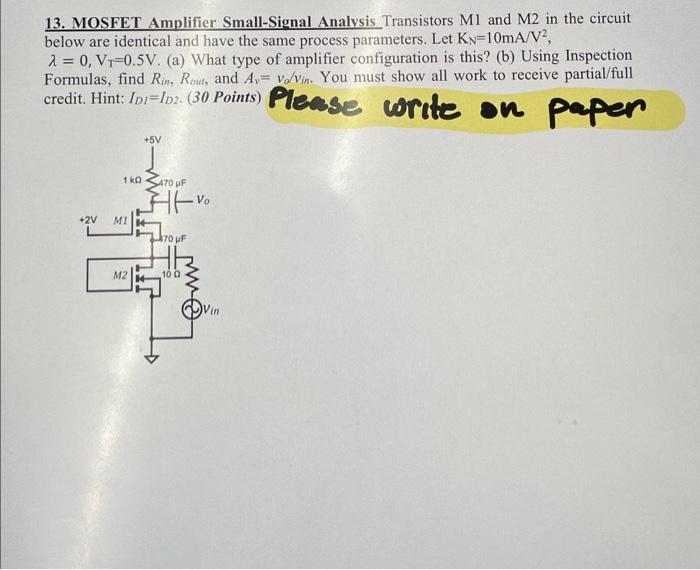 13. MOSFET Amplifier Small-Signal Analysis Transistors M1 and M2 in the circuit
below are identical and have the same process parameters. Let KN=10mA/V²,
λ = 0, VT=0.5V. (a) What type of amplifier configuration is this? (b) Using Inspection
Formulas, find Rin, Rout, and Av= vo/vin. You must show all work to receive partial/full
credit. Hint: ID1=ID2. (30 Points) Please write on paper
+5V
1 kΩ
470 µF
Vo
+2V M1
470 µF
M2
10 Ω
Vin